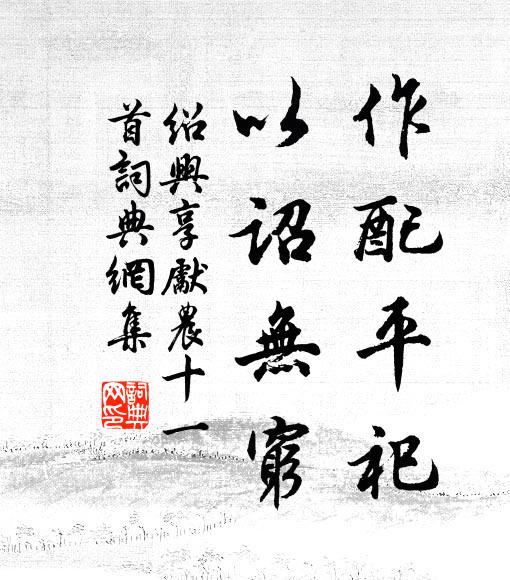 作配平祀
以詔無窮
紹興享獻農十一
首詞典網集
詞典网印